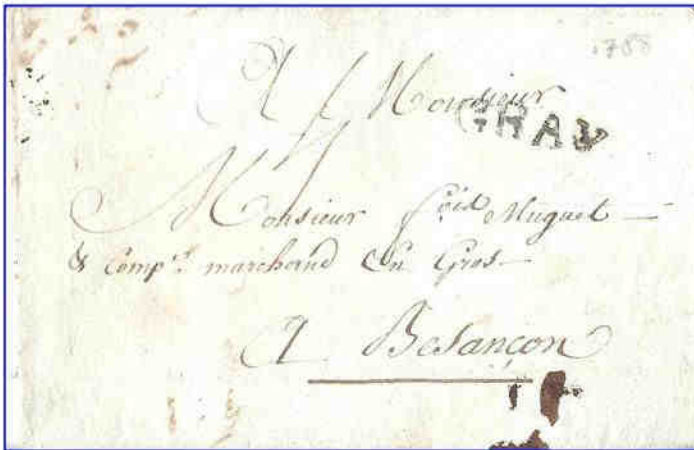 1788
A Monsieur
GRAY
Monsieur f.ois Muguet
& Comp.e marchand En Gros
A Besançon